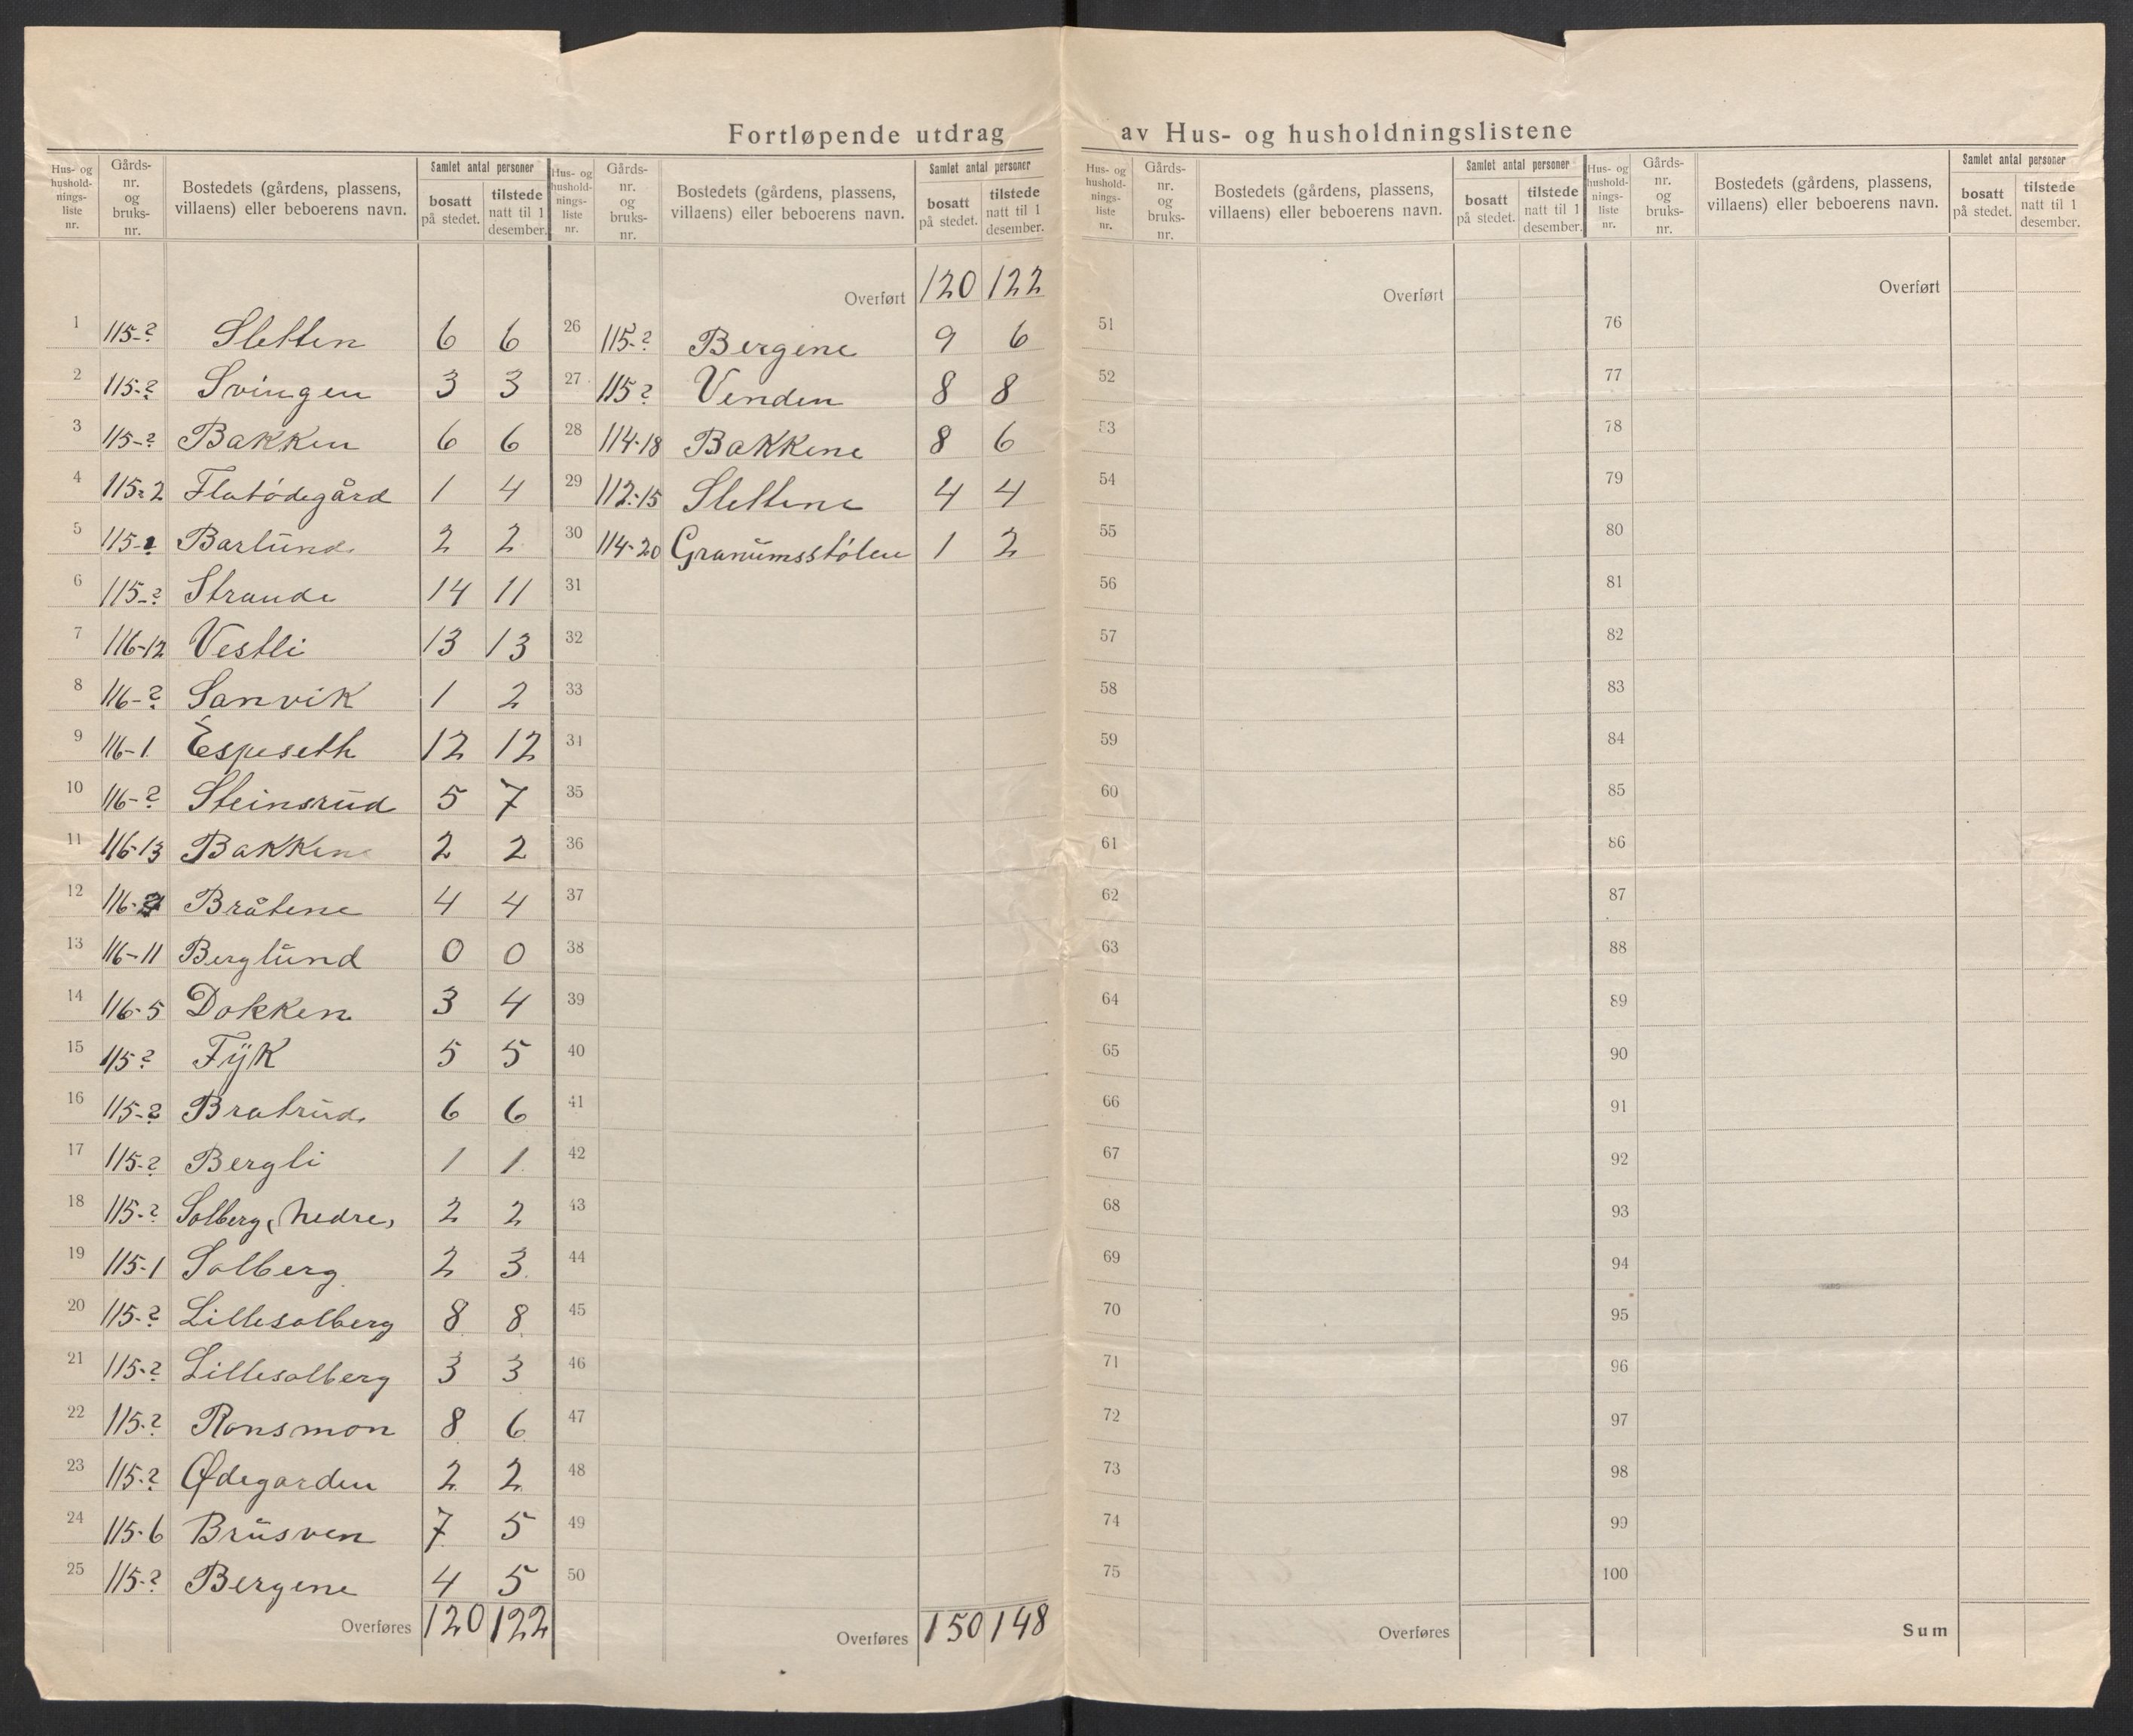 Fortløpende utdrag av Hus- og husholdningslistene
Hus- og hushold-nings-liste nr. | Gårds-nr. og bruks-nr. | Bostedets (gårdens, plassens, villaens) eller beboerens navn. | Samlet antal personer | bosatt på stedet. | tilstede natt til 1 desember.
1 115-? Sletten 6 6
2 115-? Svingen 3 3
3 115-? Bakken 6 6
4 115-2 Flatødegård 1 4
5 115- Barlund 2 2
6 115-? Strande 14 11
7 116-12 Vestli 13 13
8 116-? Sanvik 1 2
9 116-1 Espeseth 12 12
10 116-? Steinsrud 5 7
11 116-13 Bakkene 2 2
12 116- Bråtene 4 4
13 116-11 Berglund 0 0
14 116-5 Dokken 3 4
15 115? Fÿk 5 5
16 115-? Bratrud 6 6
17 115-? Bergli 1 1
18 115-? Solberg, nedre, 2 2
19 115-1 Solberg 2 3
20 115-? Lillesolberg 8 8
21 115-? Lillesolberg 3 3
22 115-? Ronsmon 8 6
23 115-? Ødegarden 2 2
24 115-6 Brusven 7 5
25 115-? Bergene 4 5
Overføres 120 122
Hus- og hushold-nings-liste nr. | Gårds-nr. og bruks-nr. | Bostedets (gårdens, plassens, villaens) eller beboerens navn. | Samlet antal personer | bosatt på stedet. | tilstede natt til 1 desember.
Overført 120 122
26 115-? Bergene 9 6
27 115? Venden 8 8
28 114-18 Bakkene 8 6
29 112-15 Slettene 4 4
30 114-20 Granumsstølen 1 2
31
32
33
34
35
36
37
38
39
40
41
42
43
44
45
46
47
48
49
50
Overføres 150 148
Hus- og hushold-nings-liste nr. | Gårds-nr. og bruks-nr. | Bostedets (gårdens, plassens, villaens) eller beboerens navn. | Samlet antal personer | bosatt på stedet. | tilstede natt til 1 desember.
Overført
51
52
53
54
55
56
57
58
59
60
61
62
63
64
65
66
67
68
69
70
71
72
73
74
75
Overføres
Hus- og hushold-nings-liste nr. | Gårds-nr. og bruks-nr. | Bostedets (gårdens, plassens, villaens) eller beboerens navn. | Samlet antal personer | bosatt på stedet. | tilstede natt til 1 desember.
Overført
76
77
78
79
80
81
82
83
84
85
86
87
88
89
90
91
92
93
94
95
96
97
98
99
100
Sum